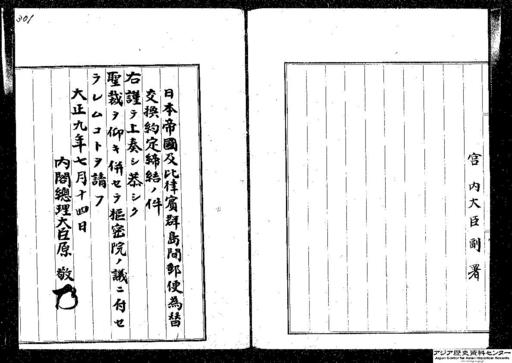 宮内大臣副署
日本帝國及比律賓群島間郵便為替
交換約定締結ノ件
右謹テ上奏シ恭シク
聖裁ヲ仰キ併セテ樞密院ノ議ニ付セ
ラレムコトヲ請フ
大正九年七月十四日
内閣總理大臣原敬
301
アジア歴史資料センター
Japan Center for Asian Historical Records